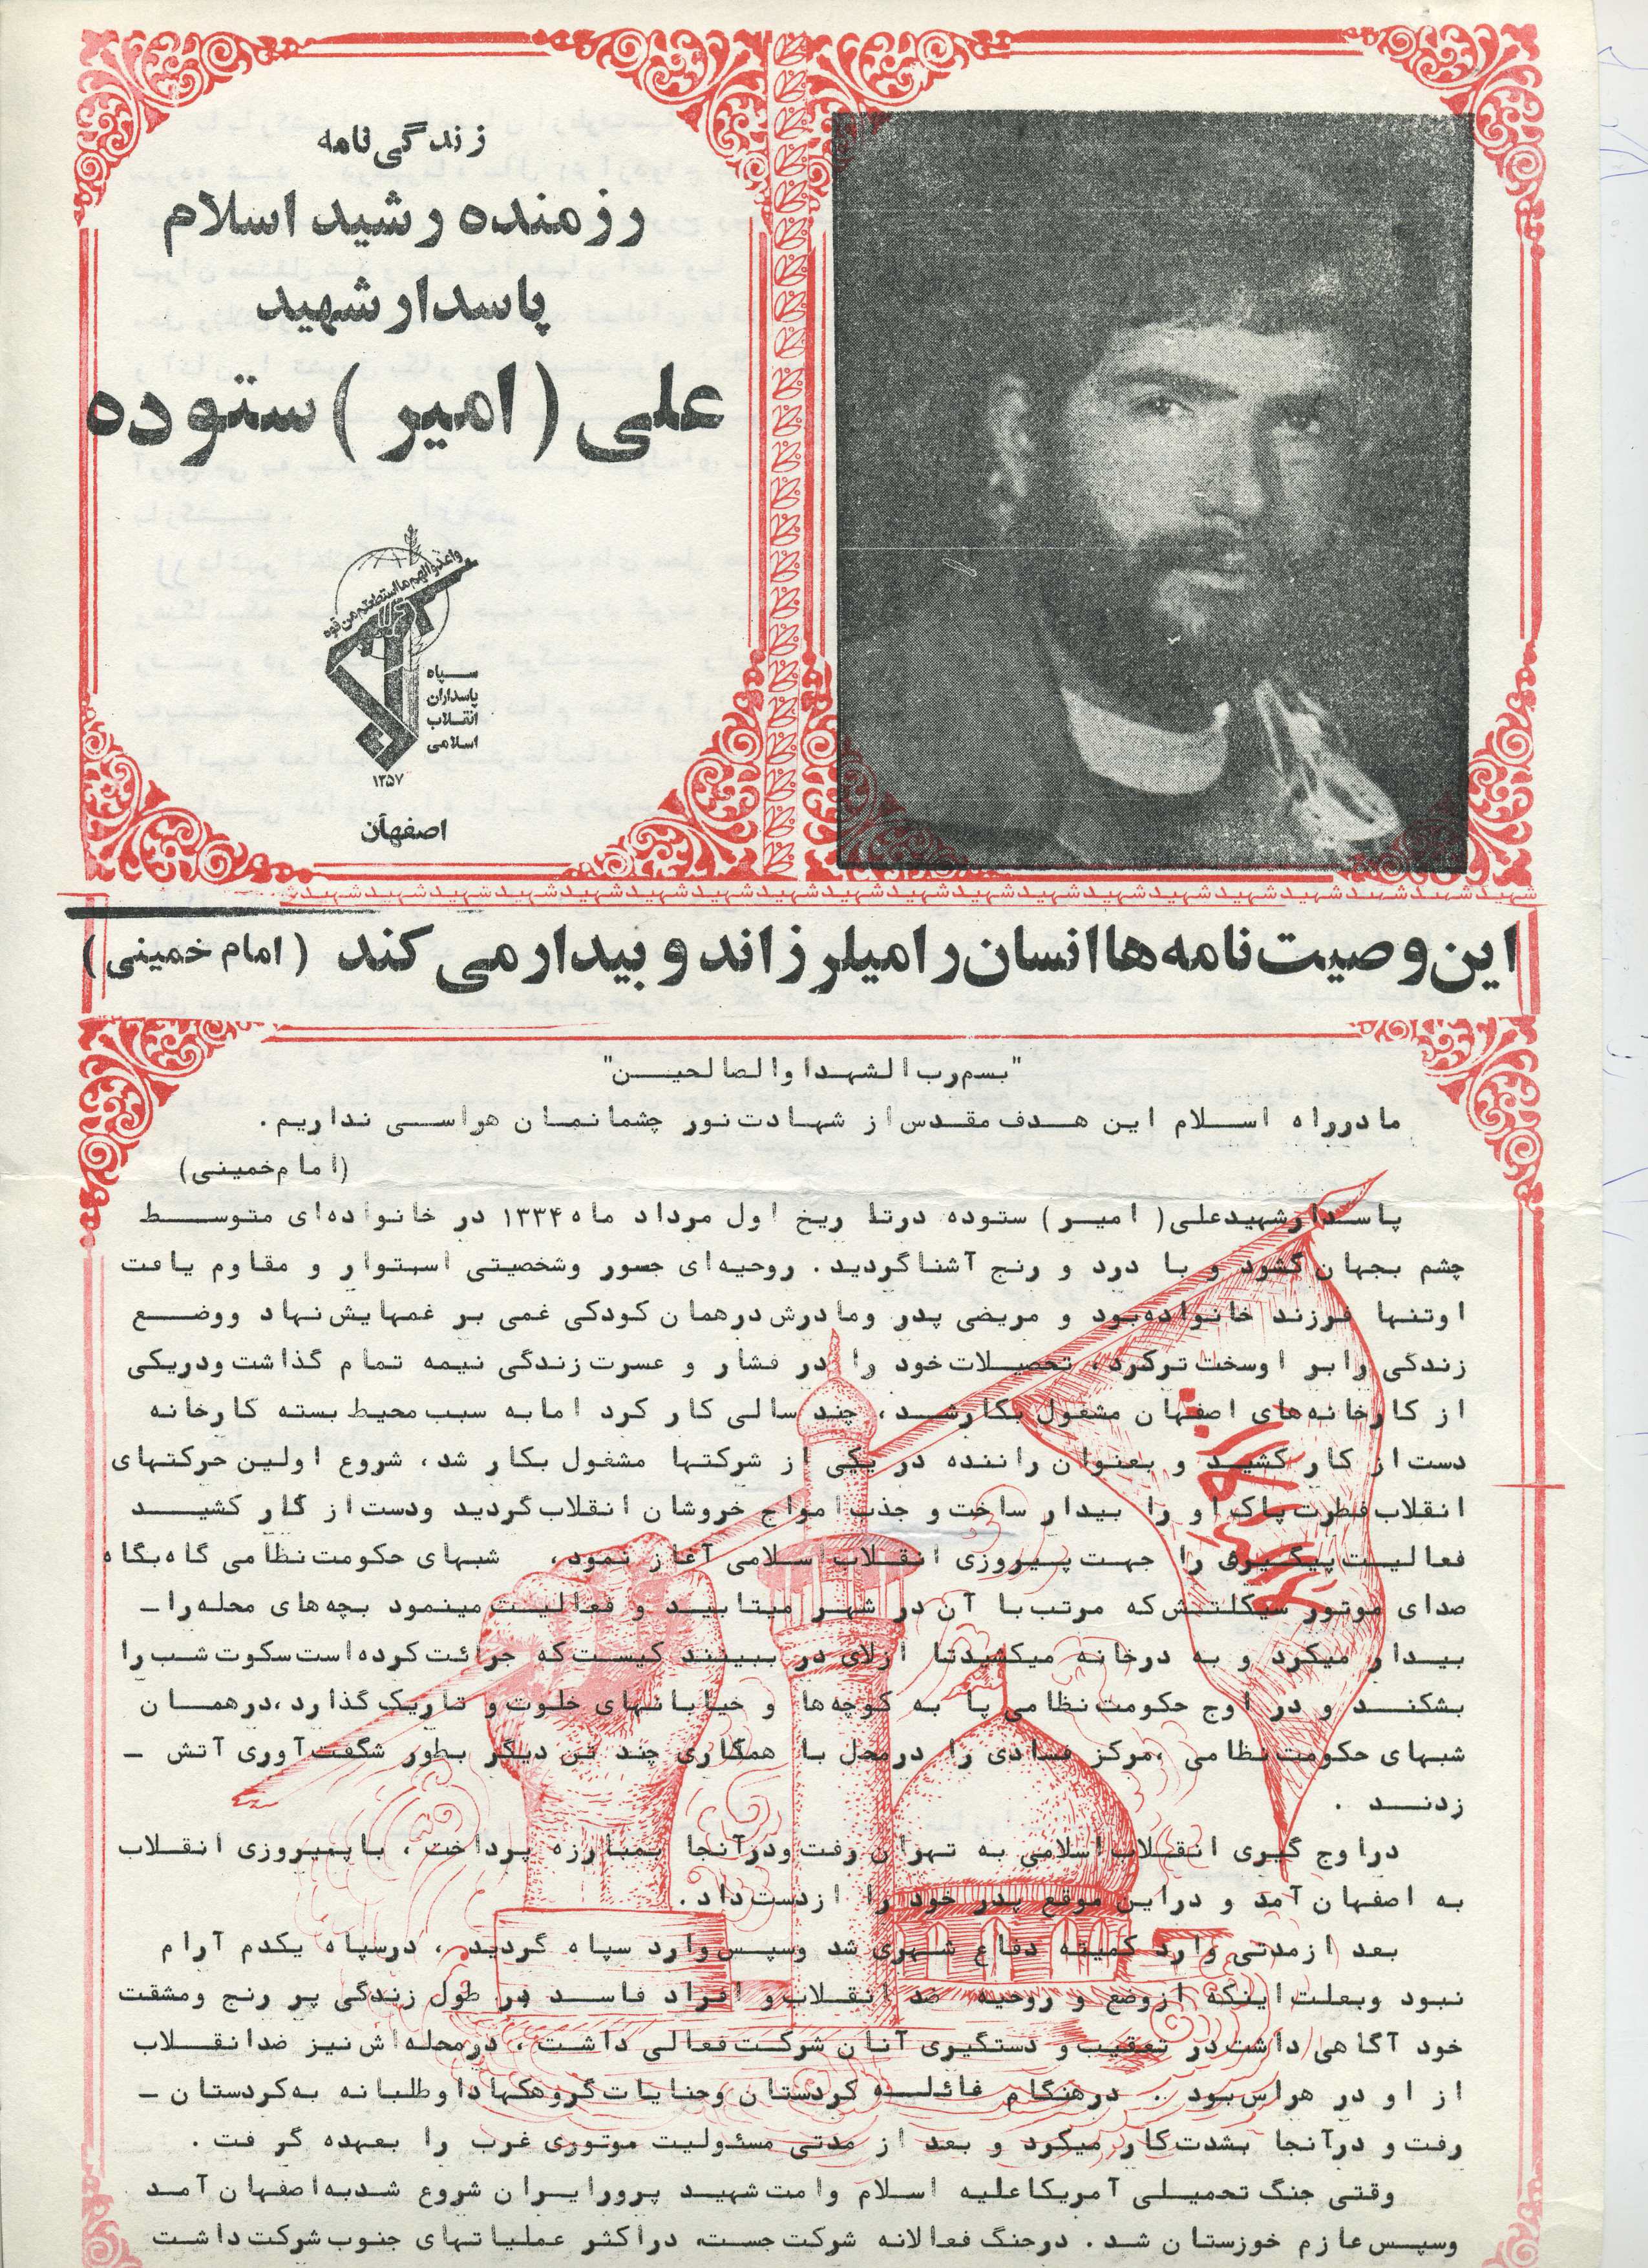 زندگی‌نامه
رزمنده رشید اسلام
پاسدار شهید
علی (امیر) ستوده
واعدوا لهم ما استطعتم من قوه
سپاه
پاسداران
انقلاب
اسلامی
۱۳۵۷
اصفهان
شهید شهید شهید شهید شهید شهید شهید شهید شهید شهید شهید شهید شهید شهید شهید شهید شهید شهید شهید
این وصیت‌نامه‌ها انسان را میلرزاند و بیدار می‌کند (امام خمینی)
"بسم رب الشهدا والصالحین"
ما در راه اسلام این هدف مقدس از شهادت نور چشمانمان هراسی نداریم .
(امام خمینی)
پاسدار شهید علی ( امیر ) ستوده در تا ریخ اول مرداد ماه ۱۳۳۴ در خانواده‌ای متوسط
چشم بجهان گشود و با درد و رنج آشنا گردید . روحیه‌ای جسور وشخصیتی استوار و مقاوم یافت
اوتنها فرزند خانواده بود و مریضی پدر ومادرش در همان کودکی غمی بر غمهایش نهاد ووضع
زندگی را بر اوسخت تر کرد ، تحصیلات خود را در فشار و عسرت زندگی نیمه تمام گذاشت ودریکی
از کارخانه‌های اصفهان مشغول بکار شد ، چند سالی کار کرد اما به سبب محیط بسته کارخانه
دست از کار کشید و بعنوان راننده در یکی از شرکتها مشغول بکار شد ، شروع اولین حرکتهای
انقلاب فطرت پاک او را بیدار ساخت و جذب امواج خروشان انقلاب گردید ودست از کار کشید
فعالیت پیگیری را جهت پیروزی انقلاب اسلامی آغاز نمود ، شبهای حکومت نظامی گاه بگاه
صدای موتور سیکلتش که مرتب با آن در شهر میتابید و فعالیت مینمود بچه‌های محله را ـ
بیدار میکرد و به درخانه میکشید تا ازلای در ببینند کیست که جرائت کرده است سکوت شب را
بشکند و در اوج حکومت نظامی پا به کوچه‌ها و خیابانهای خلوت و تاریک گذارد ،در همان
شبهای حکومت نظامی ،مرکز فسادی را در محل با همکاری چند تن دیگر بطور شگفت آوری آتش ـ
زدند .
در اوج گیری انقلاب اسلامی به تهران رفت ودرآنجا بمبارزه پرداخت ، با پیروزی انقلاب
به اصفهان آمد و دراین موقع پدر خود را ازدست داد .
بعد ازمدتی وارد کمیته دفاع شهری شد وسپس وارد سپاه گردید ، درسپاه یکدم آرام
نبود وبعلت اینکه ازوضع و روحیه ضد انقلاب و افراد فاسد در طول زندگی پر رنج ومشقت
خود آگاهی داشت در تعقیب و دستگیری آنان شرکت فعالی داشت ، درمحله‌اش نیز ضد انقلاب
از او در هراس بود . درهنگام غائله کردستان وجنایات گروهکها داوطلبانه به کردستان ـ
رفت و درآنجا بشدت کار میکرد و بعد از مدتی مسئولیت موتوری غرب را بعهده گرفت .
وقتی جنگ تحمیلی آمریکا علیه اسلام وامت شهید پرور ایران شروع شد به اصفهان آمد
وسپس عازم خوزستان شد . درجنگ فعالانه شرکت جست ، دراکثر عملیاتهای جنوب شرکت داشت